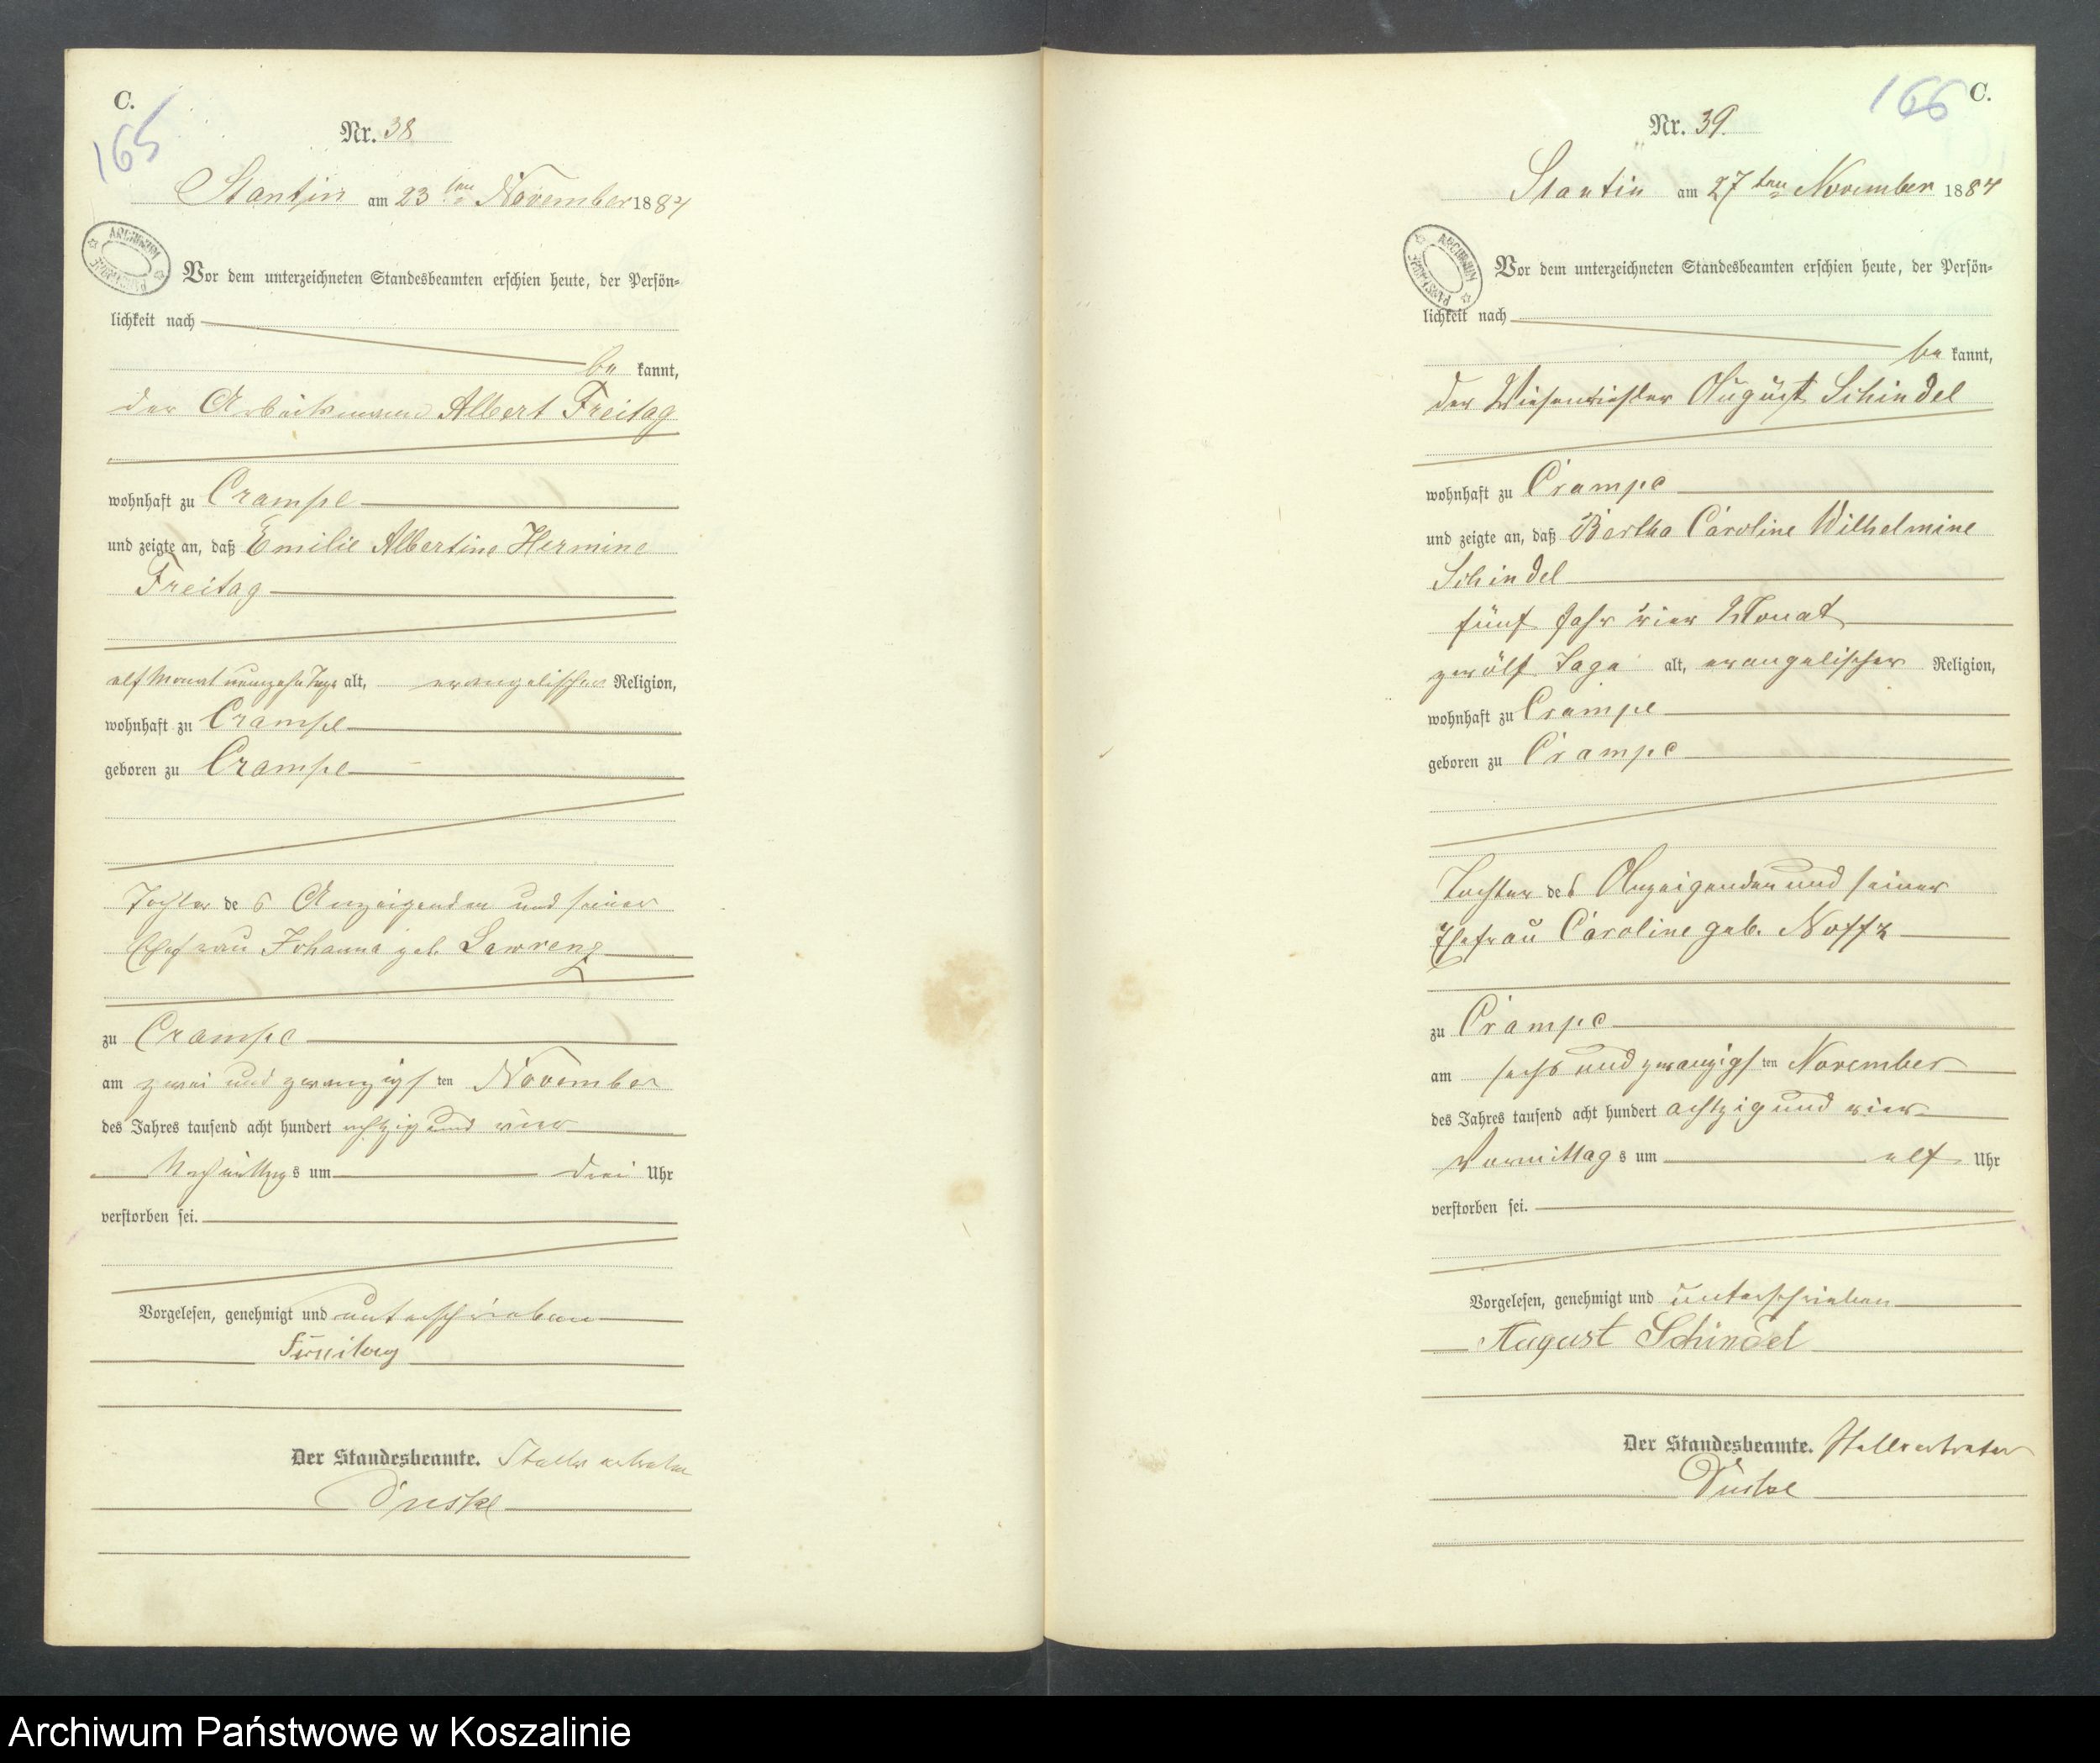 C.
165
Nr. 38
Stantin am 23ten November 1884
ARCHIWUM PAŃSTWOWE
Vor dem unterzeichneten Standesbeamten erschien heute, der Persön-
lichkeit nach
be kannt,
der Arbeitsmann Albert Freitag
wohnhaft zu Crampe
und zeigte an, daß Emilie Albertine Hermine
Freitag
elf Monat neunzehn Tage alt, evangelischer Religion,
wohnhaft zu Crampe
geboren zu Crampe
Tochter des Anzeigenden und seiner
Ehefrau Johanna geb. Lawrenz
zu Crampe
am zwei und zwanzigsten November
des Jahres tausend acht hundert achtzig und vier
Nachmittags um drei Uhr
verstorben sei.
Vorgelesen, genehmigt und unterschrieben
Freitag
Der Standesbeamte. Stellvertreter
166
C.
Nr. 39.
Stantin am 27ten November 1884
ARCHIWUM PAŃSTWOWE
Vor dem unterzeichneten Standesbeamten erschien heute, der Persön-
lichkeit nach
be kannt,
der August Schindel
wohnhaft zu Crampe
und zeigte an, daß Bertha Caroline Wilhelmine
Schindel
fünf Jahr vier Monat
zwölf Tage alt, evangelischer Religion,
wohnhaft zu Crampe
geboren zu Crampe
Tochter des Anzeigenden und seiner
Ehefrau Caroline geb. Noffz
zu Crampe
am sechs und zwanzigsten November
des Jahres tausend acht hundert achtzig und vier
Vormittags um elf Uhr
verstorben sei.
Vorgelesen, genehmigt und unterschrieben
August Schindel
Der Standesbeamte. Stellvertreter
Archiwum Państwowe w Koszalinie